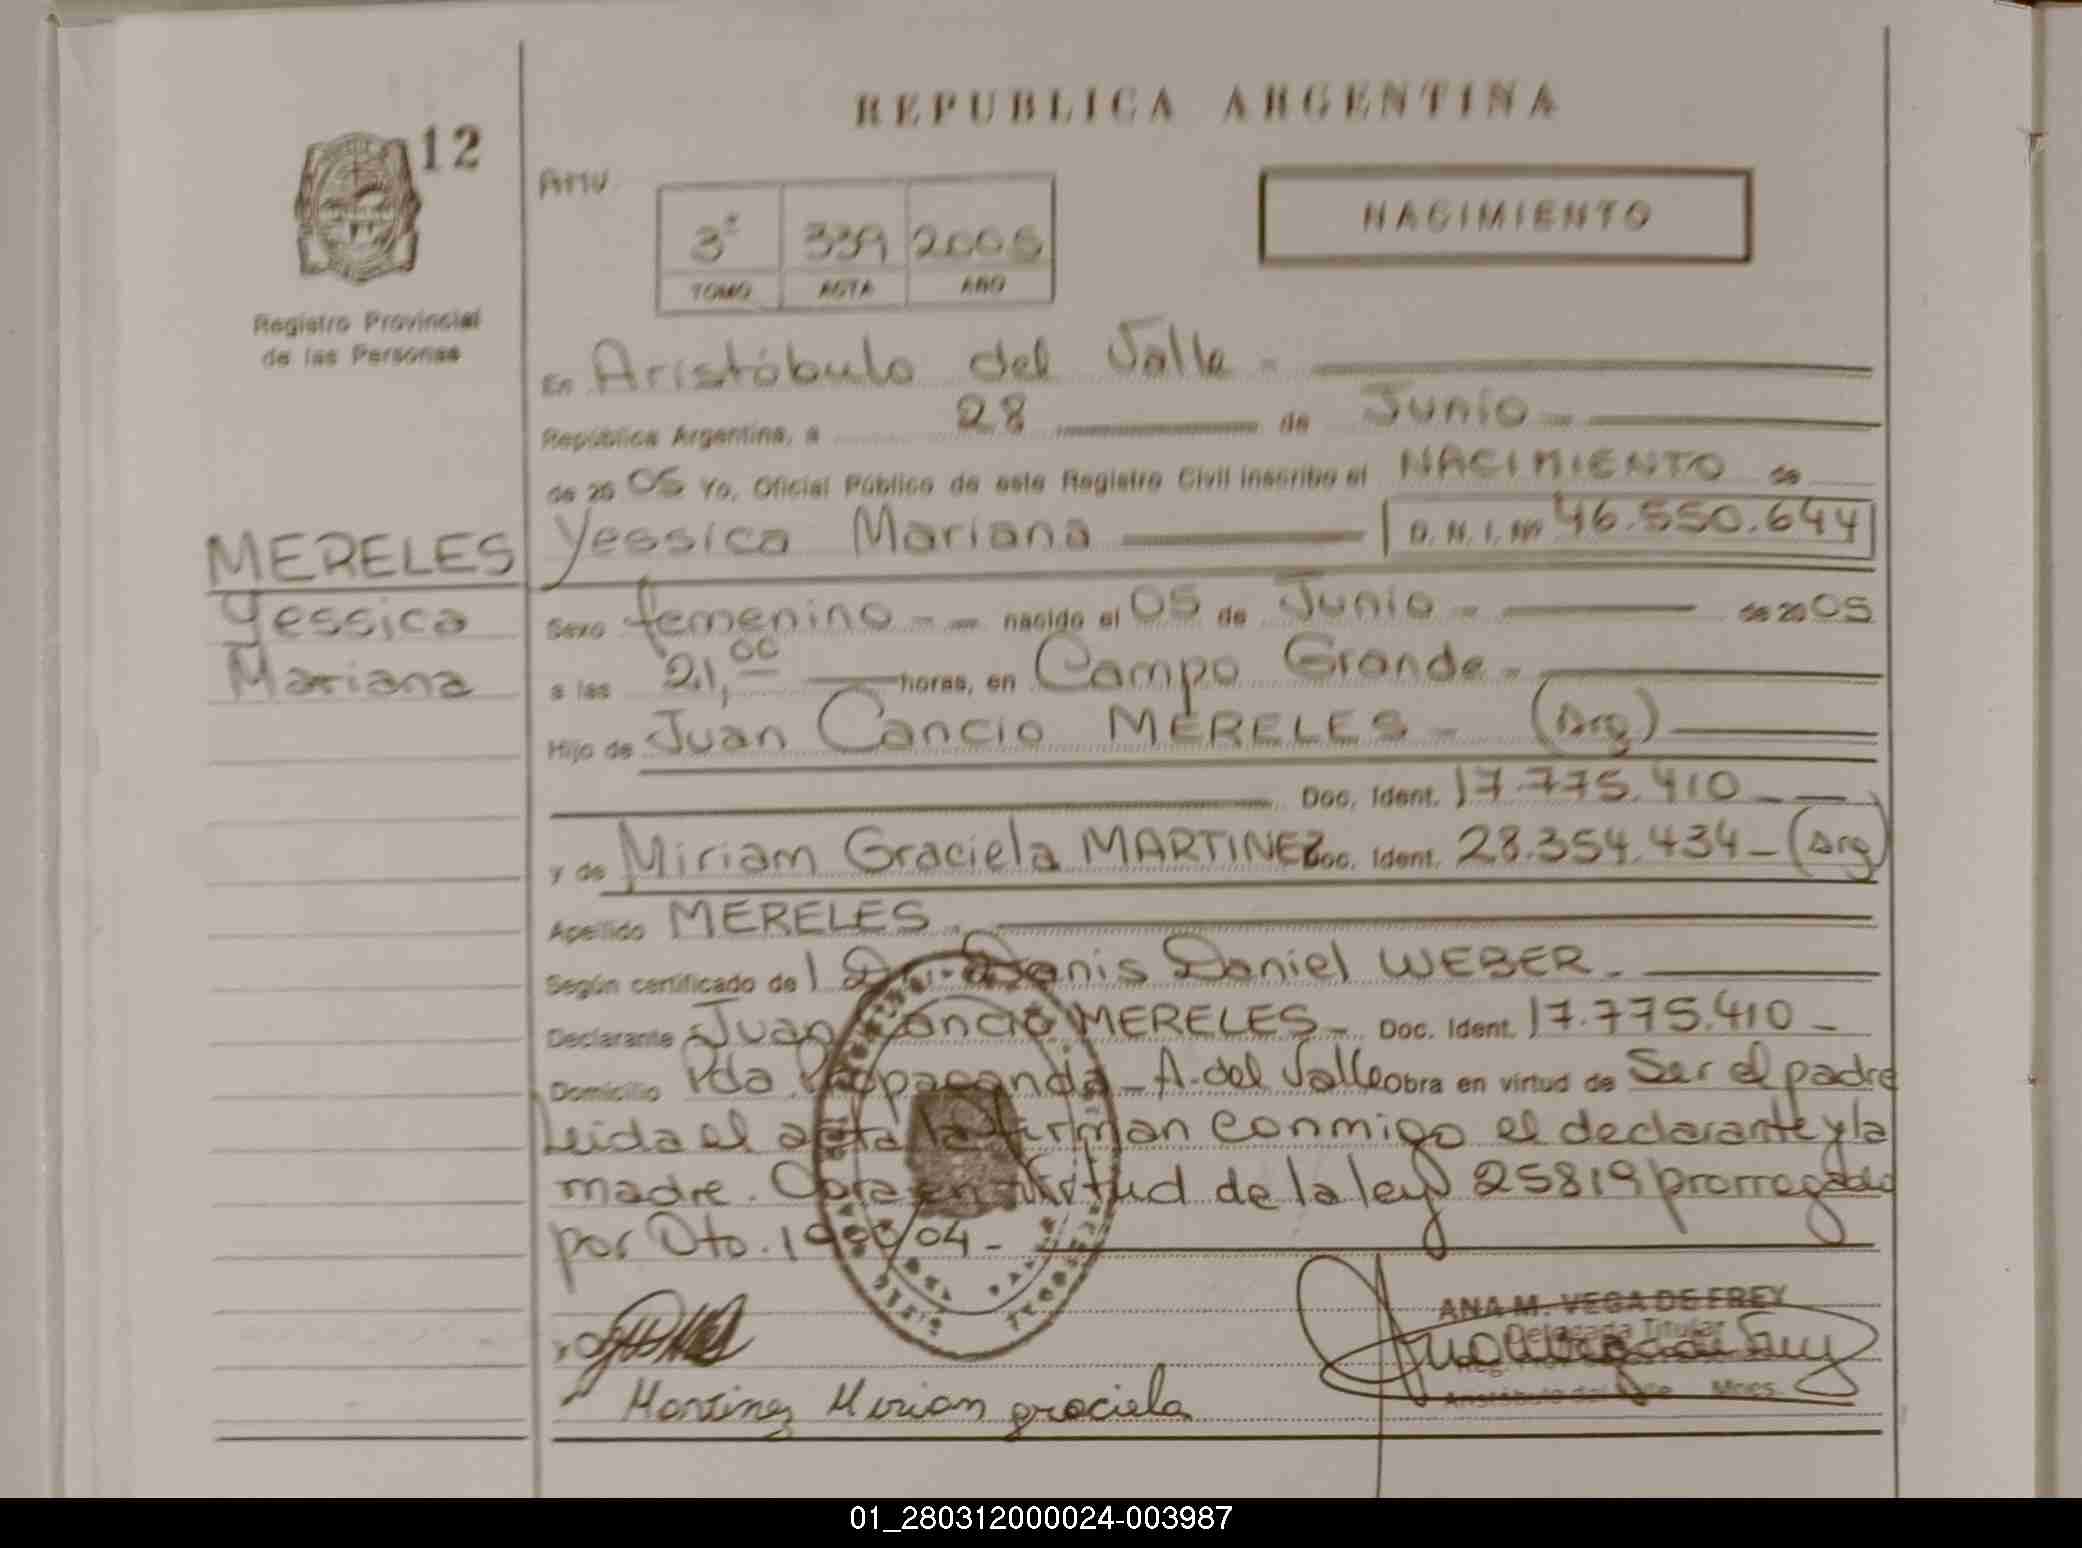 REPUBLICA ARGENTINA
12
AMV
NACIMIENTO
3º 339 2005
TOMO ACTA AÑO
Registro Provincial
de las Personas
En Aristóbulo del Valle -
República Argentina, a 28 de Junio -
de 20 05 Yo, Oficial Público de este Registro Civil inscribo el NACIMIENTO de
MERELES
Yessica
Mariana
Yessica Mariana D.N.I. Nº 46.550.644
Sexo femenino - - nacido el 05 de Junio - de 20 05
a las 21,00 horas, en Campo Grande -
Hijo de Juan Cancio MERELES - (Arg)
Doc. Ident. 17.775.410 -
y de Miriam Graciela MARTINEZ Doc. Ident. 28.354.434 - (Arg)
Apellido MERELES -
Según certificado de l Dr. Denis Daniel WEBER -
Declarante Juan Cancio MERELES - Doc. Ident. 17.775.410 -
Domicilio Pda. Propaganda - A. del Valle Obra en virtud de Ser el padre
Leida el acta la firman conmigo el declarante y la
madre. Obra en virtud de la ley 25819 prorrogada
por Dto. /04 -
ANA M. VEGA DE FREY
Delegada Titular
Aristóbulo del Valle Mnes.
Martinez Mirian graciela
01_280312000024-003987